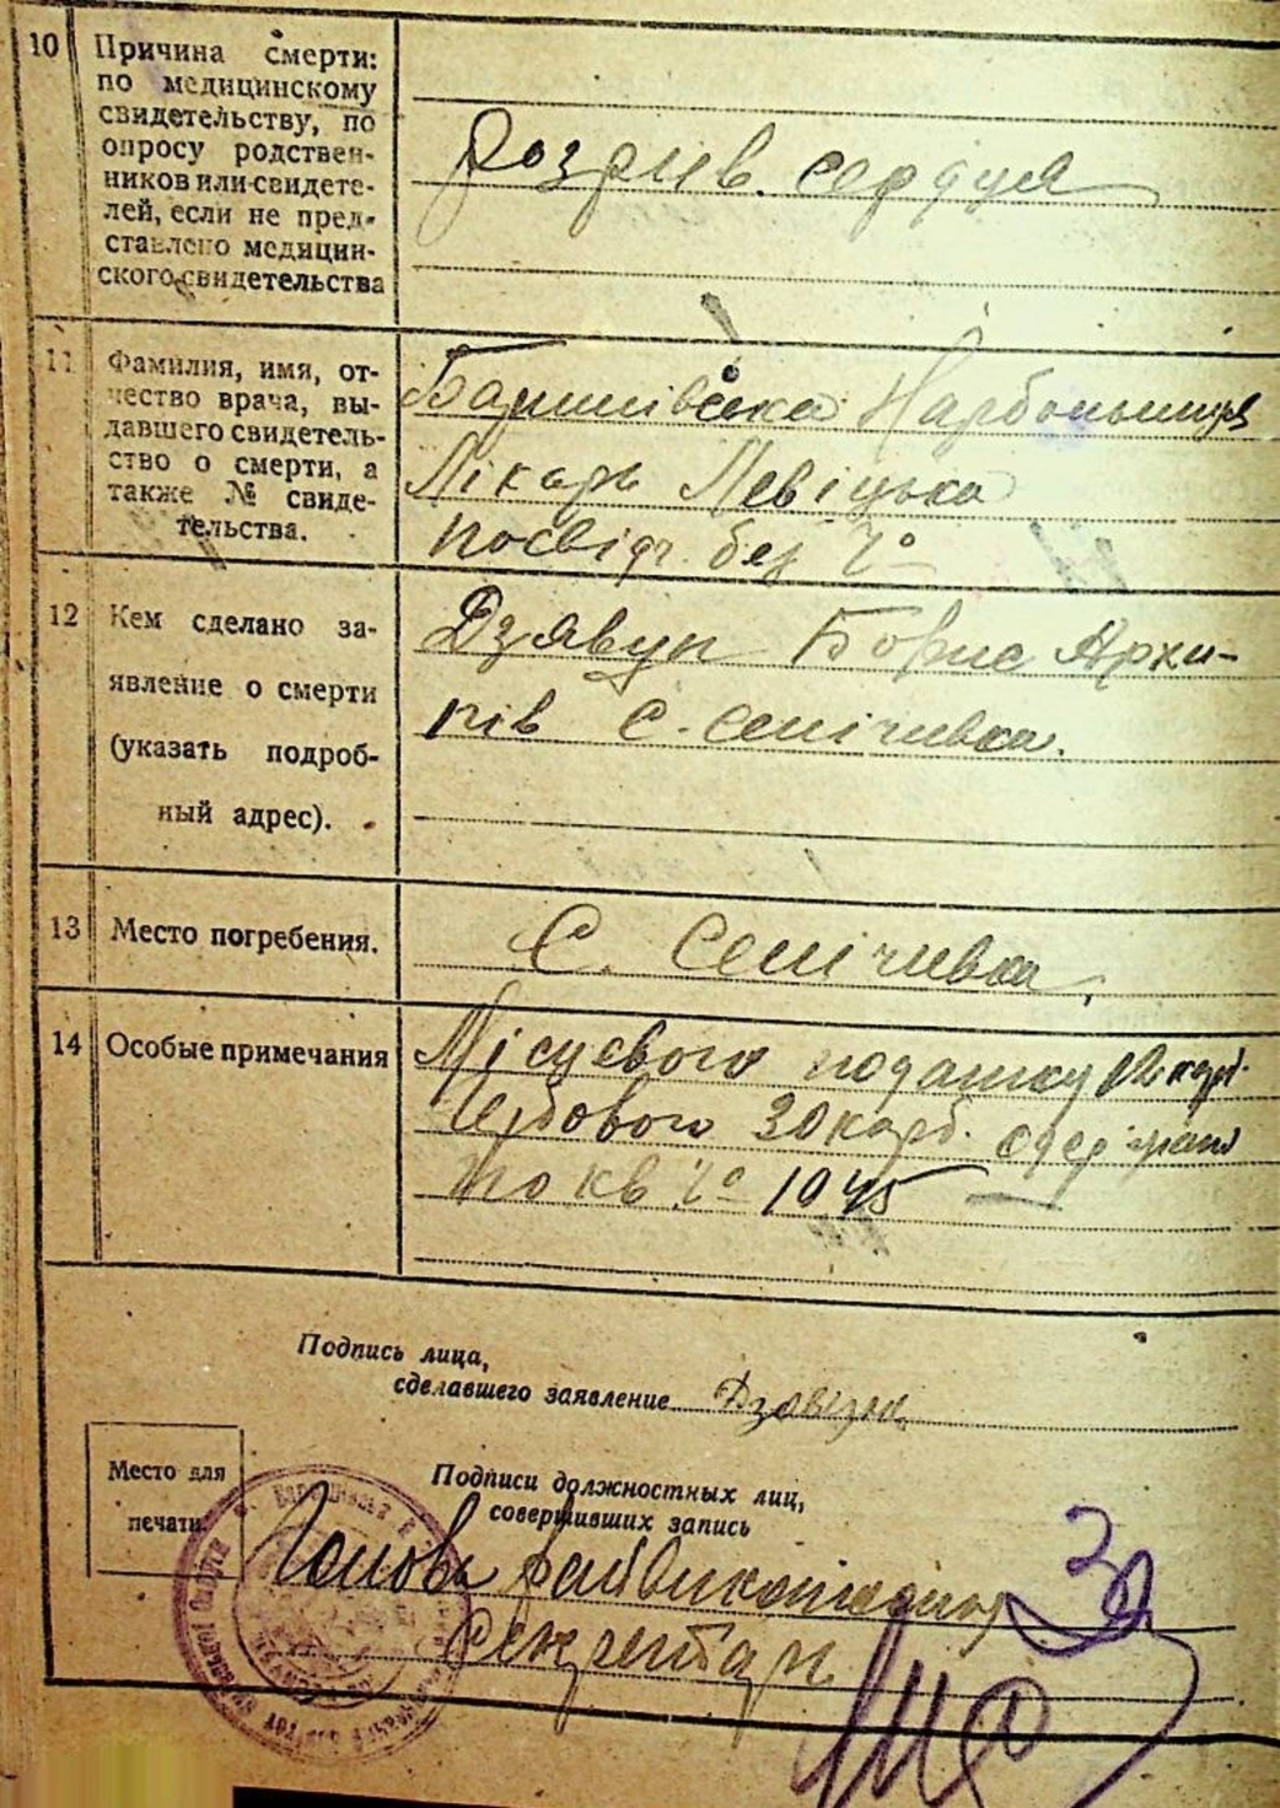 10 Причина смерти:
по медицинскому
свидетельству, по
опросу родствен-
ников или свидете-
лей, если не пред-
ставлено медицин-
ского свидетельства
Розрив. сердця
11 Фамилия, имя, от-
чество врача, вы-
давшего свидетель-
ство о смерти, а
также № свиде-
тельства.
Баришівська
Лікарь Левіцька
посвідч. без №
12 Кем сделано за-
явление о смерти
(указать подроб-
ный адрес).
Дзявун Борис Архи-
пів с. Сенічивка.
13 Место погребения.
С. Сенічивка,
14 Особые примечания
Місцевого податку 12 карб.
Гербового 30 карб.
по кв. № 1945
Подпись лица,
сделавшего заявление
Место для
печати.
Подписи должностных лиц,
совершивших запись
Голова Райвиконкому
Секретарь